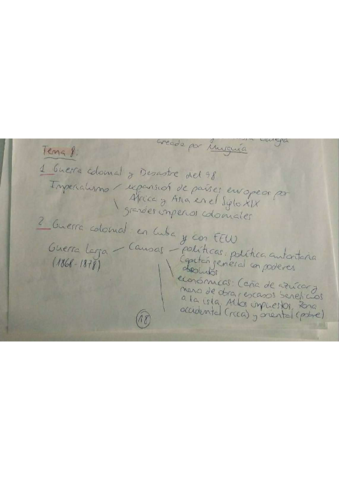 creada por Munguía
Tema 8
1. Guerra colonial y Desastre del 98
Imperialismo - expansión de países europeos por
África y Asia en el siglo XIX
grandes imperios coloniales
2. Guerra colonial en Cuba y con EEUU
Guerra Larga - Causas - políticas: política autoritaria
(1868-1878) Capitán general con poderes
absolutos
económicas: Caña de azúcar y
mano de obra escasos beneficios
a la isla. Altos impuestos. Zona
occidental (rica) y oriental (pobre)
18